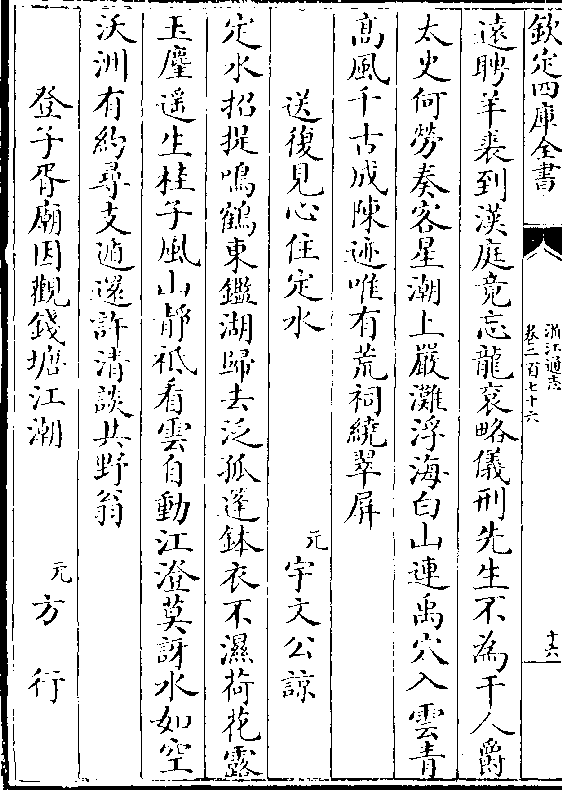 欽定四庫全書
浙江通志
卷二百七十六
十六
遠聘羊裘到漢庭竟忘龍衮略儀刑先生不為干人爵
太史何勞奏客星潮上嚴灘浮海白山連禹穴入雲青
髙風千古成陳迹唯有荒祠繞翠屏
送復見心住定水
元宇文公諒
定水招提鳴鶴東鑑湖歸去泛孤篷鉢衣不濕荷花露
玉麈遥生桂子風山靜祗看雲自動江澄莫訝水如空
沃洲有約尋支遁還許清談共野翁
登子胥廟因觀錢塘江潮
元方行